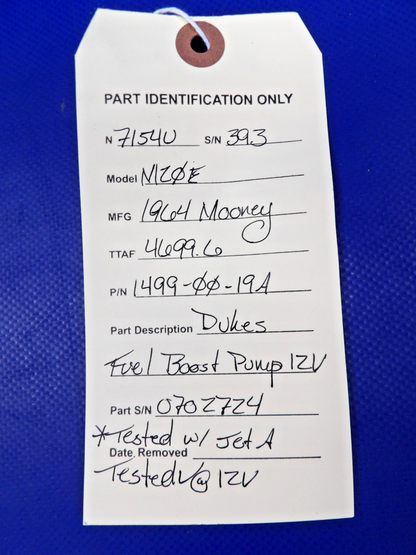 PART IDENTIFICATION ONLY
N 7154U S/N 393
Model M20E
MFG 1964 Mooney
TTAF 4699.6
P/N 1499-00-19A
Part Description Dukes
Fuel Boost Pump 12V
Part S/N 0702724
*Tested w/ Jet A
Date Removed
Tested @ 12V